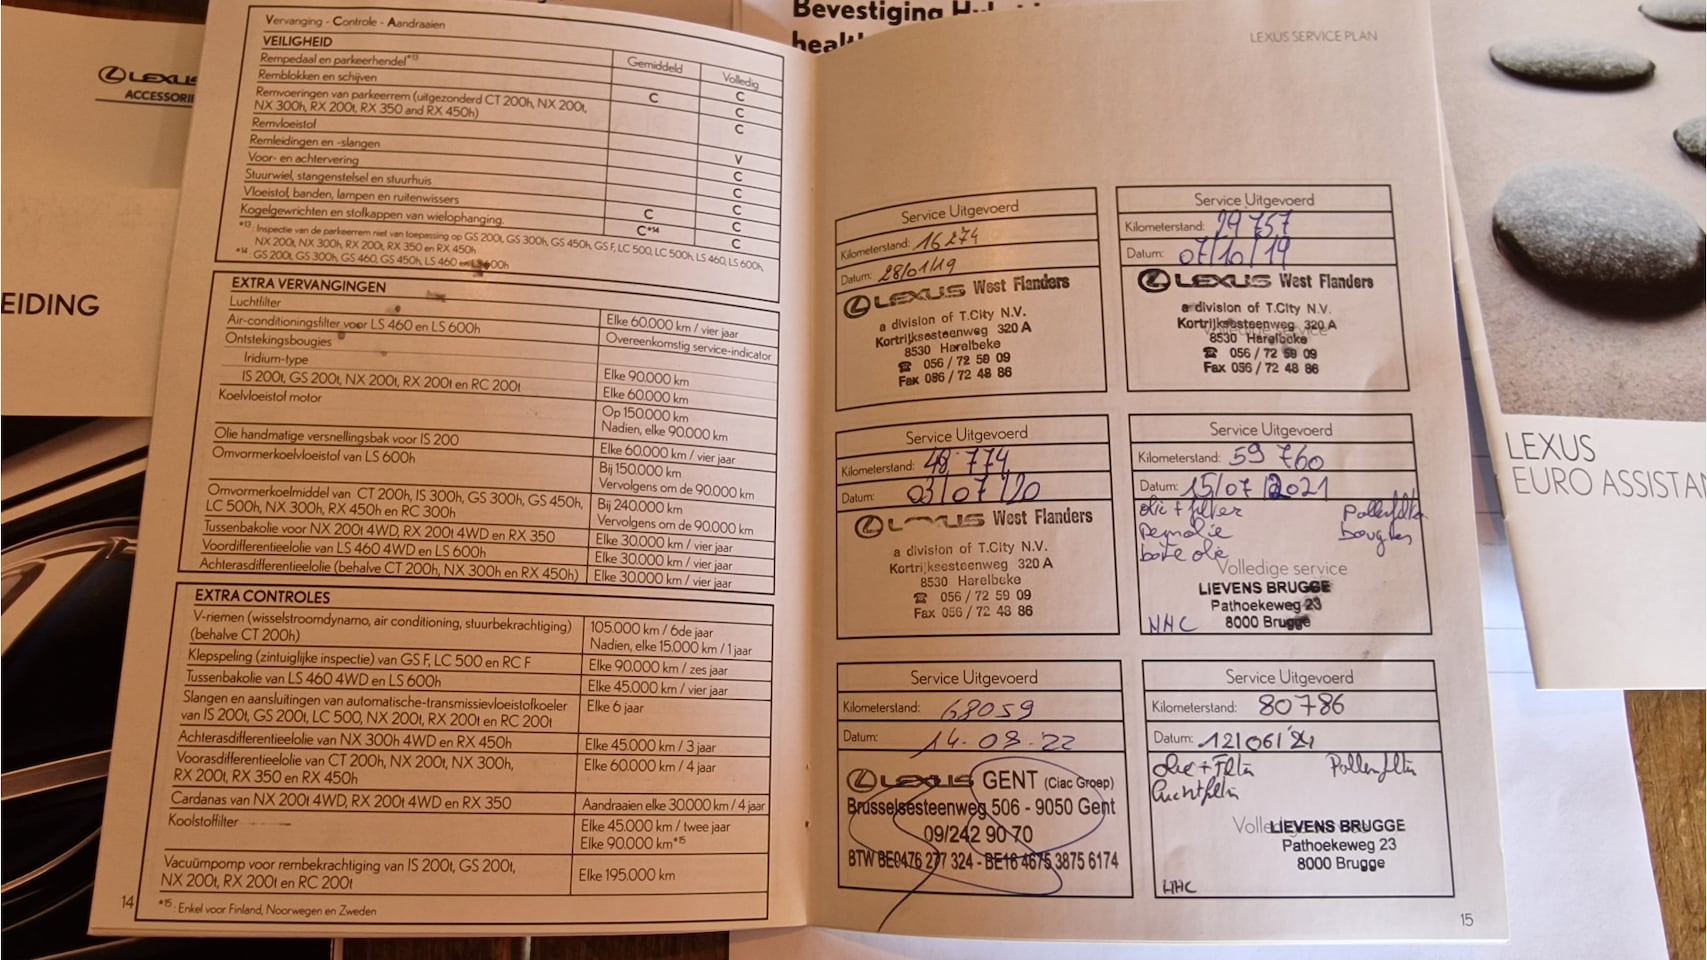 LEXUS
ACCESSORI
EIDING
Bevestiging
Vervanging - Controle - Aandraaien
VEILIGHEID
Gemiddeld
Volledig
Rempedaal en parkeerhendel*13
C
Remblokken en schijven
C
C
Remvoeringen van parkeerrem (uitgezonderd CT 200h, NX 200t,
NX 300h, RX 200t, RX 350 and RX 450h)
C
Remvloeistof
V
Remleidingen en -slangen
C
Voor- en achtervering
C
Stuurwiel, stangenstelsel en stuurhuis
C
Vloeistof, banden, lampen en ruitenwissers
C
C
Kogelgewrichten en stofkappen van wielophanging.
C*14
C
*13 : Inspectie van de parkeerrem niet van toepassing op GS 200t, GS 300h, GS 450h, GS F, LC 500, LC 500h, LS 460, LS 600h,
NX 200t, NX 300h, RX 200t, RX 350 en RX 450h
*14 : GS 200t, GS 300h, GS 460, GS 450h, LS 460 en LS 600h
EXTRA VERVANGINGEN
Luchtfilter
Elke 60.000 km / vier jaar
Air-conditioningsfilter voor LS 460 en LS 600h
Overeenkomstig service-indicator
Ontstekingsbougies
Iridium-type
Elke 90.000 km
IS 200t, GS 200t, NX 200t, RX 200t en RC 200t
Elke 60.000 km
Koelvloeistof motor
Op 150.000 km
Nadien, elke 90.000 km
Olie handmatige versnellingsbak voor IS 200
Elke 60.000 km / vier jaar
Omvormerkoelvloeistof van LS 600h
Bij 150.000 km
Vervolgens om de 90.000 km
Omvormerkoelmiddel van CT 200h, IS 300h, GS 300h, GS 450h,
LC 500h, NX 300h, RX 450h en RC 300h
Bij 240.000 km
Vervolgens om de 90.000 km
Tussenbakolie voor NX 200t 4WD, RX 200t 4WD en RX 350
Elke 30.000 km / vier jaar
Voordifferentieelolie van LS 460 4WD en LS 600h
Elke 30.000 km / vier jaar
Achterasdifferentieelolie (behalve CT 200h, NX 300h en RX 450h)
Elke 30.000 km / vier jaar
EXTRA CONTROLES
V-riemen (wisselstroomdynamo, air conditioning, stuurbekrachtiging)
(behalve CT 200h)
105.000 km / 6de jaar
Nadien, elke 15.000 km / 1 jaar
Klepspeling (zintuiglijke inspectie) van GS F, LC 500 en RC F
Elke 90.000 km / zes jaar
Tussenbakolie van LS 460 4WD en LS 600h
Elke 45.000 km / vier jaar
Slangen en aansluitingen van automatische-transmissievloeistofkoeler
van IS 200t, GS 200t, LC 500, NX 200t, RX 200t en RC 200t
Elke 6 jaar
Achterasdifferentieelolie van NX 300h 4WD en RX 450h
Elke 45.000 km / 3 jaar
Voorasdifferentieelolie van CT 200h, NX 200t, NX 300h,
RX 200t, RX 350 en RX 450h
Elke 60.000 km / 4 jaar
Cardanas van NX 200t 4WD, RX 200t 4WD en RX 350
Aandraaien elke 30.000 km / 4 jaar
Koolstoffilter
Elke 45.000 km / twee jaar
Elke 90.000 km*15
Vacuümpomp voor rembekrachtiging van IS 200t, GS 200t,
NX 200t, RX 200t en RC 200t
Elke 195.000 km
*15 : Enkel voor Finland, Noorwegen en Zweden
14
LEXUS SERVICE PLAN
Service Uitgevoerd
Kilometerstand: 16 274
Datum: 28/01/19
LEXUS West Flanders
a division of T.City N.V.
Kortrijksesteenweg 320 A
8530 Harelbeke
☎ 056 / 72 59 09
Fax 056 / 72 48 86
Service Uitgevoerd
Kilometerstand: 29 757
Datum: 07/10/19
LEXUS West Flanders
a division of T.City N.V.
Kortrijksesteenweg 320 A
8530 Harelbeke
☎ 056 / 72 59 09
Fax 056 / 72 48 86
Service Uitgevoerd
Kilometerstand: 48 774
Datum: 03/07/20
LEXUS West Flanders
a division of T.City N.V.
Kortrijksesteenweg 320 A
8530 Harelbeke
☎ 056 / 72 59 09
Fax 056 / 72 48 86
Service Uitgevoerd
Kilometerstand: 59 760
Datum: 15/07/2021
olie + filter
Pollenfilter
Remolie
bougies
bote olie
Volledige service
LIEVENS BRUGGE
Pathoekeweg 23
8000 Brugge
HHC
Service Uitgevoerd
Kilometerstand: 68059
Datum: 14-09-22
LEXUS GENT (Ciac Groep)
Brusselsesteenweg 506 - 9050 Gent
09/242 90 70
BTW BE0476 277 324 - BE16 4675 3875 6174
Service Uitgevoerd
Kilometerstand: 80786
Datum: 12/06/24
Olie + Filter
Pollenfilter
Luchtfilter
LIEVENS BRUGGE
Pathoekeweg 23
8000 Brugge
HHC
15
LEXUS
EURO ASSISTAN